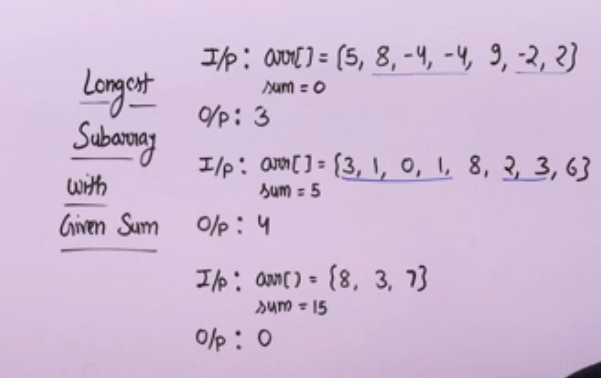 Longest
Subarray
with
Given Sum
I/p: arr[] = {5, 8, -4, -4, 9, -2, 2}
sum = 0
O/p: 3
I/p: arr[] = {3, 1, 0, 1, 8, 2, 3, 6}
sum = 5
O/p: 4
I/p: arr[] = {8, 3, 7}
sum = 15
O/p: 0